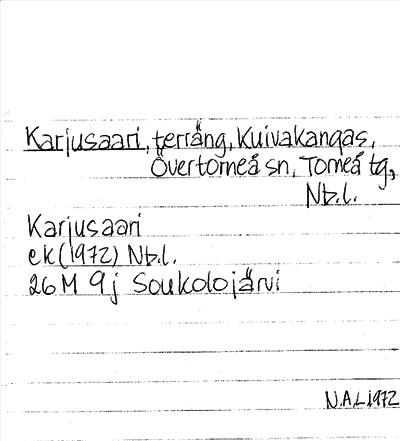 Karjusaari, terräng, Kuivakangas,
Övertorneå sn, Torneå tg,
Nb.l.
Karjusaari
ek (1972) Nb.l.
26 M 9 j Soukolojärvi
N.A.L 1972